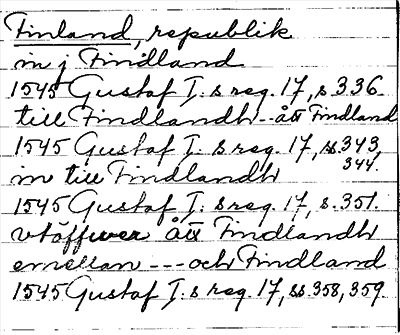 Finland, republik
in j Findland
1545 Gustaf I: s reg. 17, s 336.
till Findlandh -- ått Findland
1545 Gustaf I: s reg. 17, ss 343,
344.
in till Findlandh
1545 Gustaf I: s reg. 17, s. 351.
vtöffwer ått Findlandh
emellan --- och Findland
1545 Gustaf I: s reg. 17, ss 358, 359.